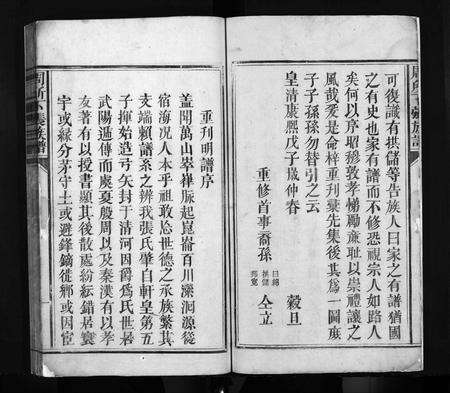 可復識有拱儲等告族人曰家之有譜猶國
之有史也家有譜而不修恐視宗人如路人
矣何以序昭穆敦孝悌勵廉耻以崇禮讓之
風哉爰是命梓重刊梨先集後其為一圖庶
子子孫孫勿替引之云
皇清康熙戊子歲仲春 穀旦
重修首事裔孫 拱儲 仝立
重刊明譜序
蓋聞萬山崒嵂脈起崑崙百川瀠洄源從
宿海况人本乎祖敢忘世德之承族繁其
支端賴譜系之辨我張氏肇自軒皇第五
子揮始造弓矢封于清河因爵為氏世居
武陽遞傳而處夏殷周以及秦漢有以孝
友著有以授書顯其後散處紛紜錯居寰
宇或緣分茅守土或避鋒鏑徙鄉或因宦